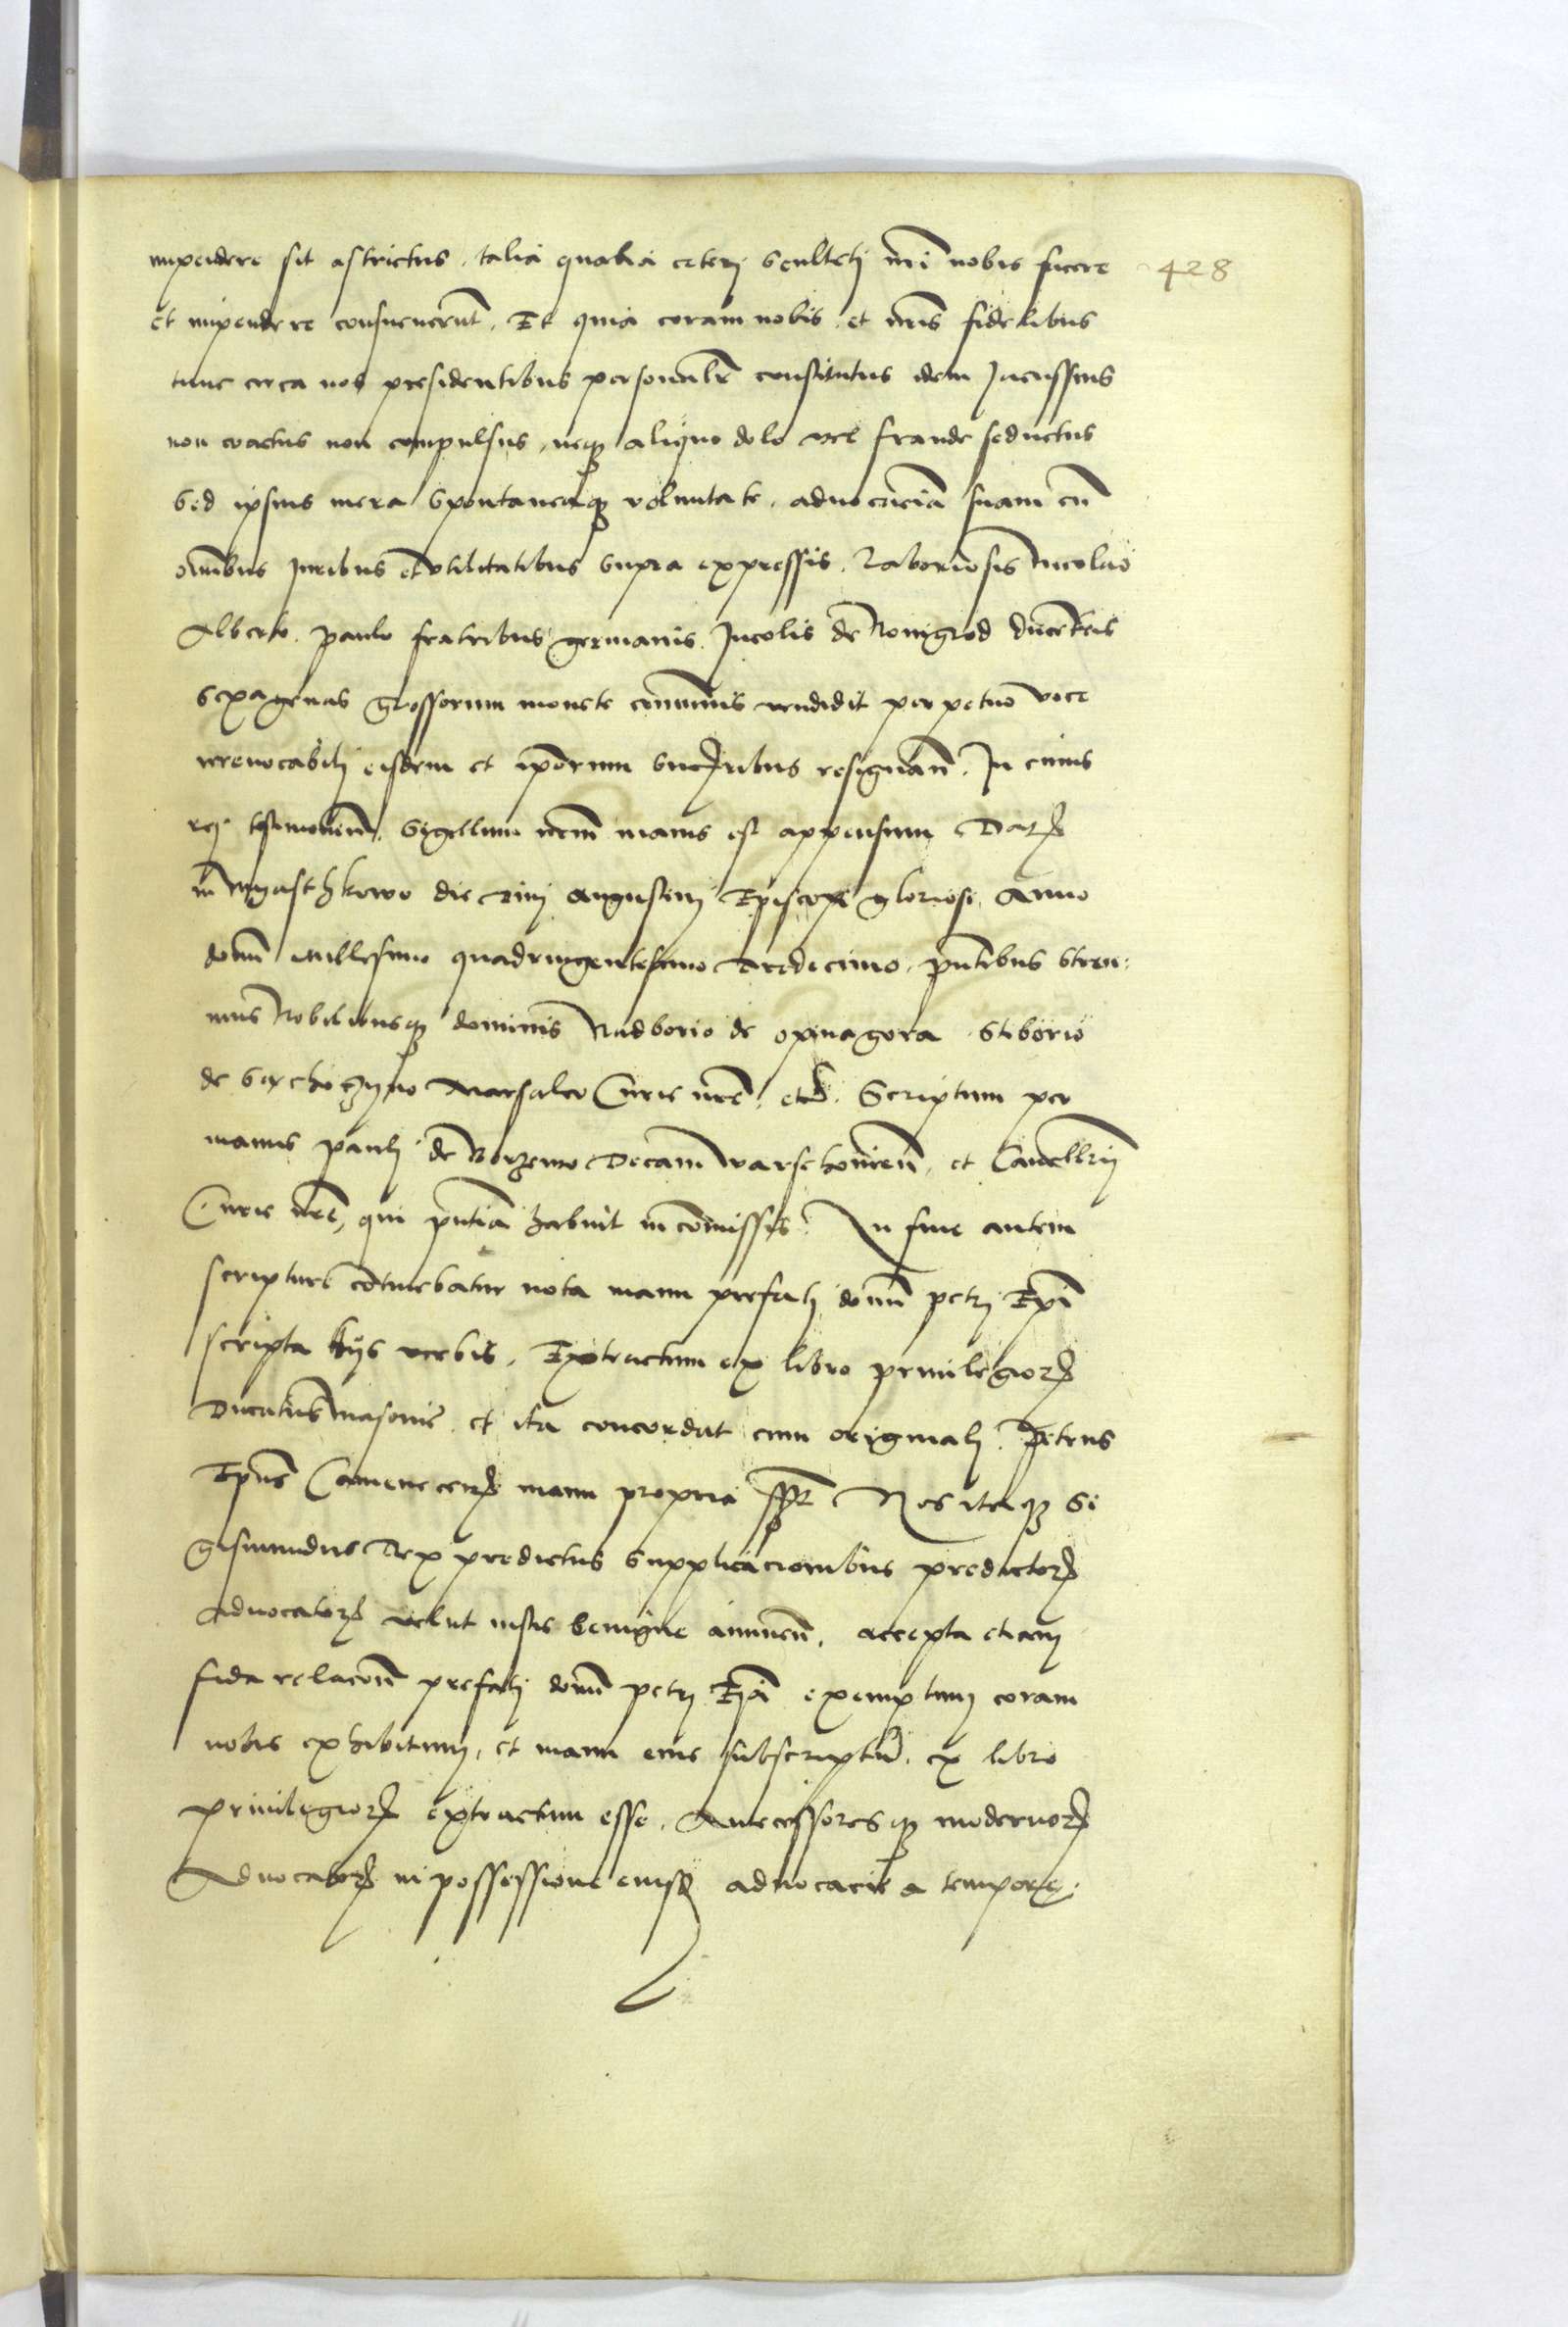 impendere sit astrictus. talia qualia ceterj Sculteti nr̃i nobis facere 428
et impendere consueuerũt. Et quia coram nobis. et nr̃is fidelibus
tunc circa nos presidentibus personalr̃ constitutus idem Jacussius
non coactus non compulsus, neq3 aliquo dolo vel fraude seductus
Sed ipsius mera Spontaneaq3 voluntate. aduocaciã suam cũ
om̃ibus Juribus et vtilitatibus Supra expressis. Laboriosis Nicolao
Alberto. paulo fratribus germanis. Incolis de Nowigrod ducentis
Sexagenas grossorum monete cõmunis vendidit perpetuo vice
irreuocabilj eisdem et ip̃orum Succ̃oribus resignan̄. In cuius
rej testimoniũ. Sigillum nr̃m maius est appensum Datꝝ
in Wyasthkowo die diuj augustinj Episcopi gloriosi Anno
domĩ Millesimo quadringentesimo Tredecimo. pñtibus Stren:
nuis Nobilibusq3 dominis Nadborio de opinagora Stiborio
de Sarchoczyno Marsalco Curie nr̃e. etc. Scriptum per
manus paulj de Borzewo Decani Warschouien̄, et Cancellrij
Curie nr̃e, qui pñtia habuit in cõmissis. In fine autem
scripture cõtinebatur nota manu prefatj domĩ petrj Epĩ
scripta hijs verbis. Extractum ex libro priuilegiorꝝ
Ducatus masouie. et ita concordat cum originalj. Petrus
Ep̃us Camenecenꝝ manu propria sspt Nos itaq3 Si
gismundus Rex predictus Supplicacionibus predictorꝝ
Aduocatorꝝ velut iustis benigne annuen̄. accepta etiam
fida relacõn̄ prefatj domĩ petrj Epĩ exemptum coram
nobis exhibitum, et manu eius subscriptũ. ex libro
priuilegiorꝝ extractum esse. Antecessoresq3 modernorꝝ
Aduocatorꝝ in possessione eiusd aduocacie a tempore